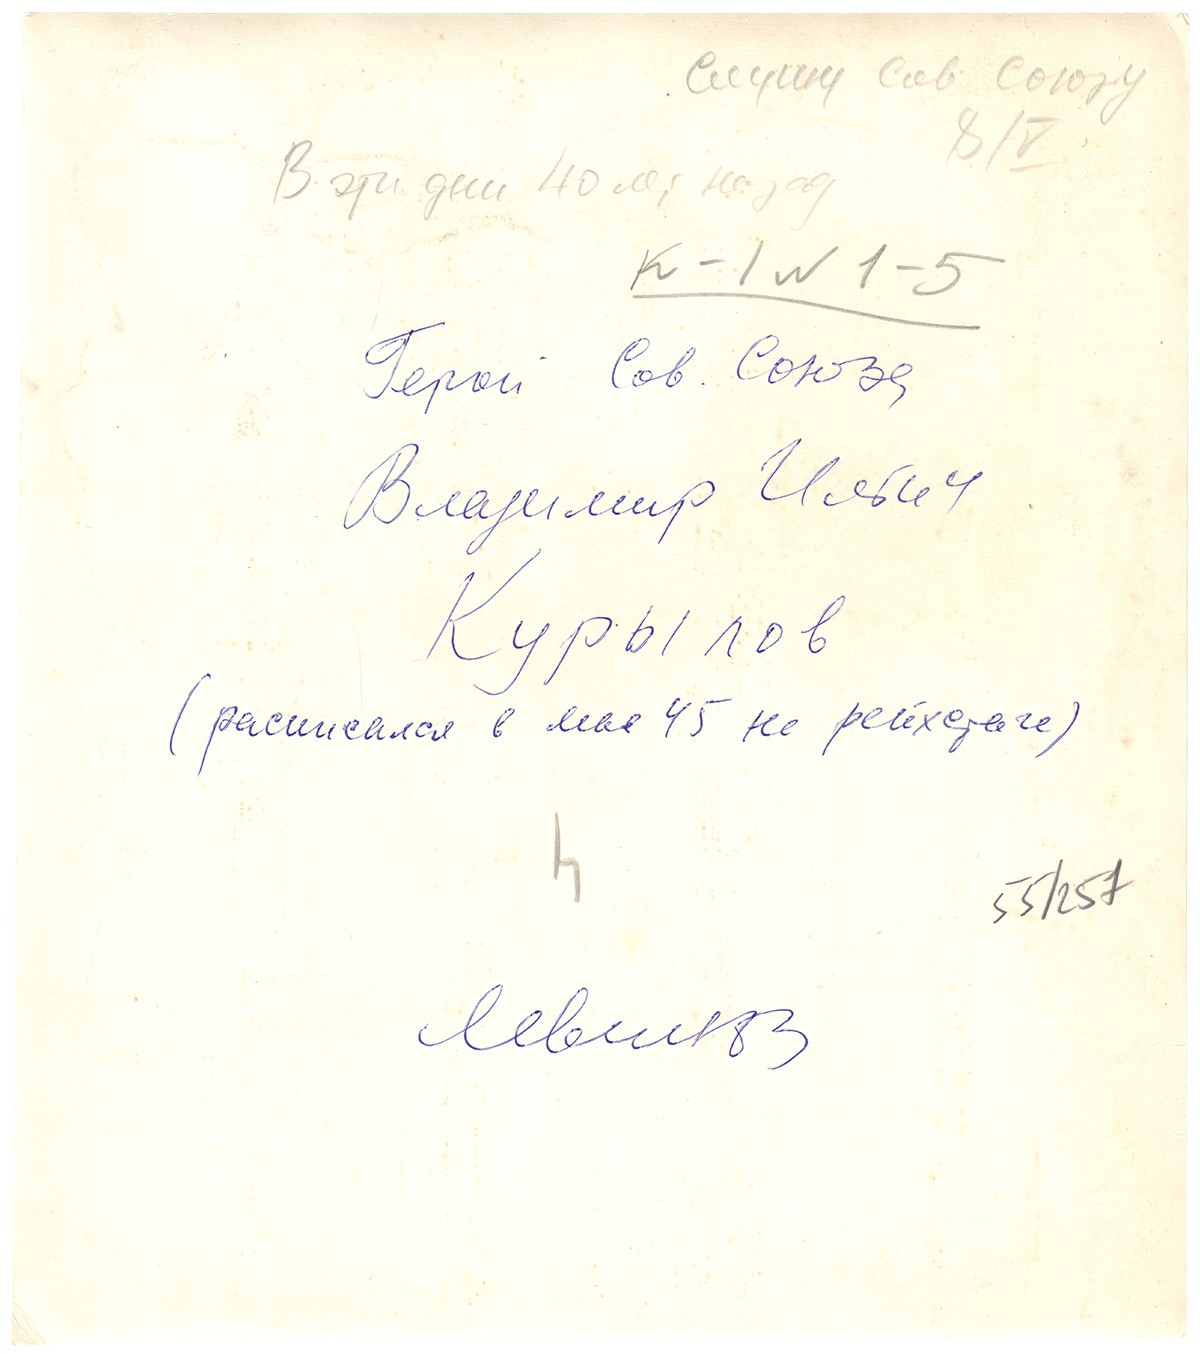 Служу Сов Союзу
8/V.
В эти дни 40 лет назад
К-1 N 1-5
Герой Сов. Союза
Владимир Ильич
Курылов
(расписался в мае 45 на рейхстаге)
55/257